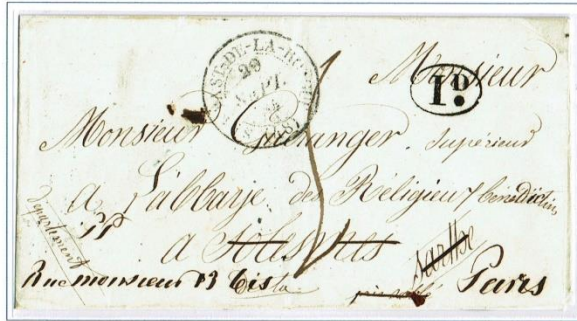 ST-DE-LA-R
29
SEPT.
(48)
1D.
Monsieur
Monsieur Guéranger Supérieur
a L'abbaye des Réligieux bénédictins
Département
a Solesmes
Sarthe
Rue monsieur 13 bis Paris